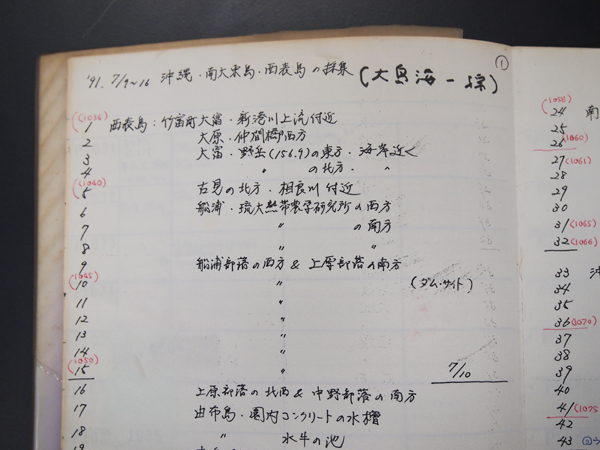 ①
'91. 7/9~16 沖縄・南大東島・西表島の採集 (大鳥海一採)
(1036)
1 西表島:竹富町大富・新港川上流付近
2 大原・仲間橋西方
3 大富・野岳(156.9)の東方・海岸近く
4 〃 の北方・ 〃
(1040)
5 古見の北方・相良川付近
6 船浦・琉大熱帯農学研究所の西方
7 〃 の南方
8 〃 〃
9 船浦部落の西方&上原部落の南方
(1045)
10 〃 (ダム・サイト)
11 〃
12 〃
13 〃
14 〃
(1050)
15 〃 7/10
16 上原部落の北西&中野部落の南方
17 由布島・園内コンクリートの水槽
18 〃 水牛の池
19
(1058)
24 南
25
26 (1060)
27 (1061)
28
29
30
31 (1065)
32 (1066)
33 沖
34
35
36 (1070)
37
38
39
40
41 (1075
42
43